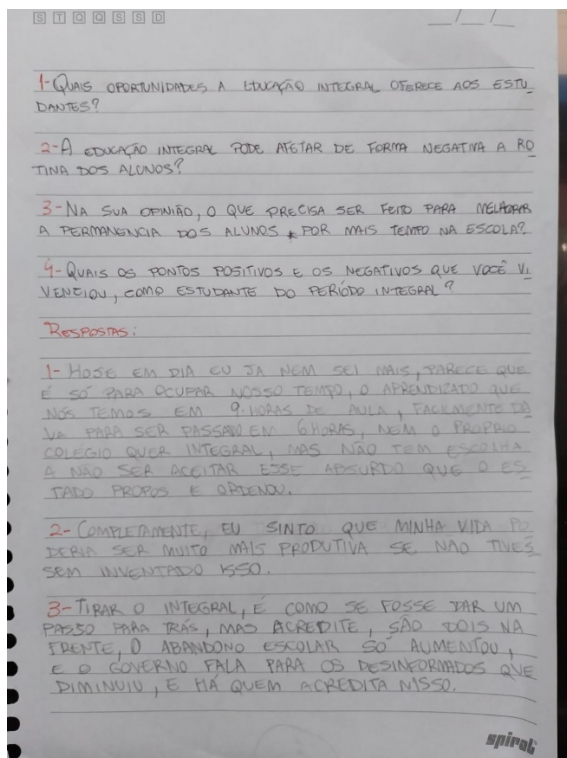 S T Q Q S S D
__/__/__
1-QUAIS OPORTUNIDADES A EDUCAÇÃO INTEGRAL OFERECE AOS ESTU
DANTES?
2-A EDUCAÇÃO INTEGRAL PODE AFETAR DE FORMA NEGATIVA A RO
TINA DOS ALUNOS?
3-NA SUA OPINIÃO, O QUE PRECISA SER FEITO PARA MELHORAR
A PERMANENCIA DOS ALUNOS POR MAIS TEMPO NA ESCOLA?
4-QUAIS OS PONTOS POSITIVOS E OS NEGATIVOS QUE VOCÊ VI
VENCIOU, COMO ESTUDANTE DO PERÍODO INTEGRAL?
RESPOSTAS:
1-HOJE EM DIA EU JA NEM SEI MAIS, PARECE QUE
É SÓ PARA OCUPAR NOSSO TEMPO, O APRENDIZADO QUE
NÓS TEMOS EM 9 HORAS DE AULA, FACILMENTE DA
VA PARA SER PASSADO EM 6 HORAS, NEM O PROPRIO
COLEGIO QUER INTEGRAL, MAS NÃO TEM ESCOLHA
A NÃO SER ACEITAR ESSE ABSURDO QUE O ES
TADO PROPOS E ORDENOU.
2-COMPLETAMENTE, EU SINTO QUE MINHA VIDA PO
DERIA SER MUITO MAIS PRODUTIVA SE NÃO TIVES
SEM INVENTADO ISSO.
3-TIRAR O INTEGRAL, É COMO SE FOSSE DAR UM
PASSO PARA TRÁS, MAS ACREDITE, SÃO DOIS NA
FRENTE, O ABANDONO ESCOLAR SÓ AUMENTOU,
E O GOVERNO FALA PARA OS DESINFORMADOS QUE
DIMINUIU, E HÁ QUEM ACREDITA NISSO.
spiral